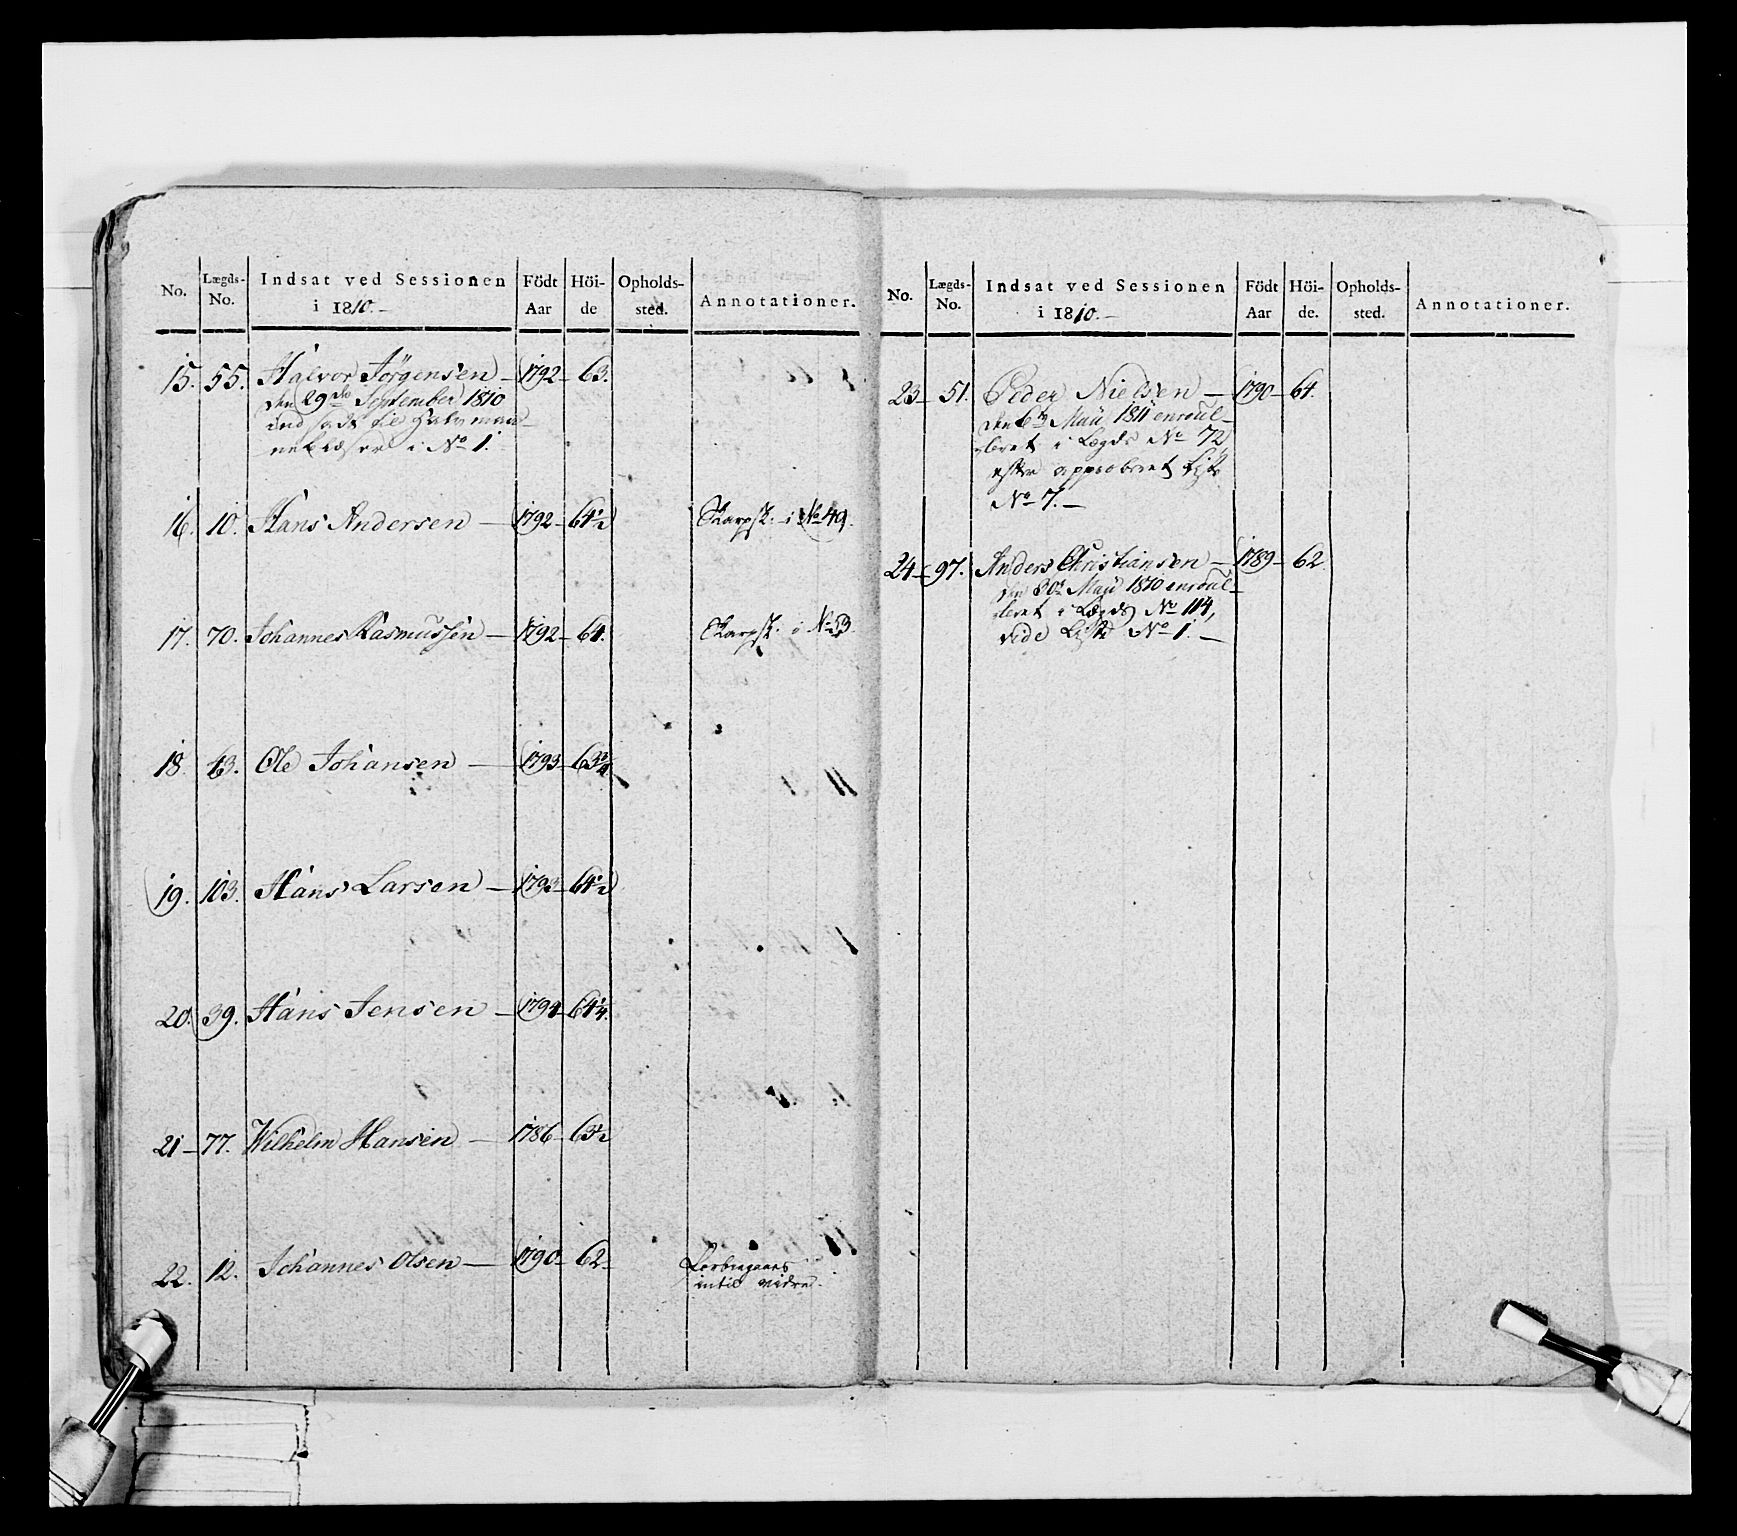 No. | Lægds-No. | Indsat ved Sessionen i 1810.- | Födt Aar | Höi-de | Opholds-sted. | Annotationer.
15. 55. Halvor Jörgensen – 1792 – 63.
den 29de September 1810
indsadt til
i No 1.
16. 10. Hans Andersen – 1792 – 64½ Skarpsk. i No 49.
17. 70. Johannes Rasmussen – 1792 – 64. Skarpsk. i No 53.
18. 43. Ole Johansen – 1793 – 63¾
19. 103. Hans Larsen – 1793 – 64½
20. 39. Hans Jensen – 1794 – 64¼.
21 – 77. Wilhelm Hansen – 1786 – 63½
22. 12. Johannes Olsen – 1790 – 62 –
intil vidre.
No. | Lægds-No. | Indsat ved Sessionen i 1810.- | Födt Aar | Höi-de. | Opholds-sted. | Annotationer.
23 – 51. Peder Nielsen – 1790 – 64.
den 6te Maii 1811 enroul-
leret i Lægds No 72
efter approberet Liste
No 7. –
24 – 97. Anders Christiansen – 1789 – 62.
den 30te Maii 1810 enroul-
leret i Lægds No 114,
vide Liste No 1. –